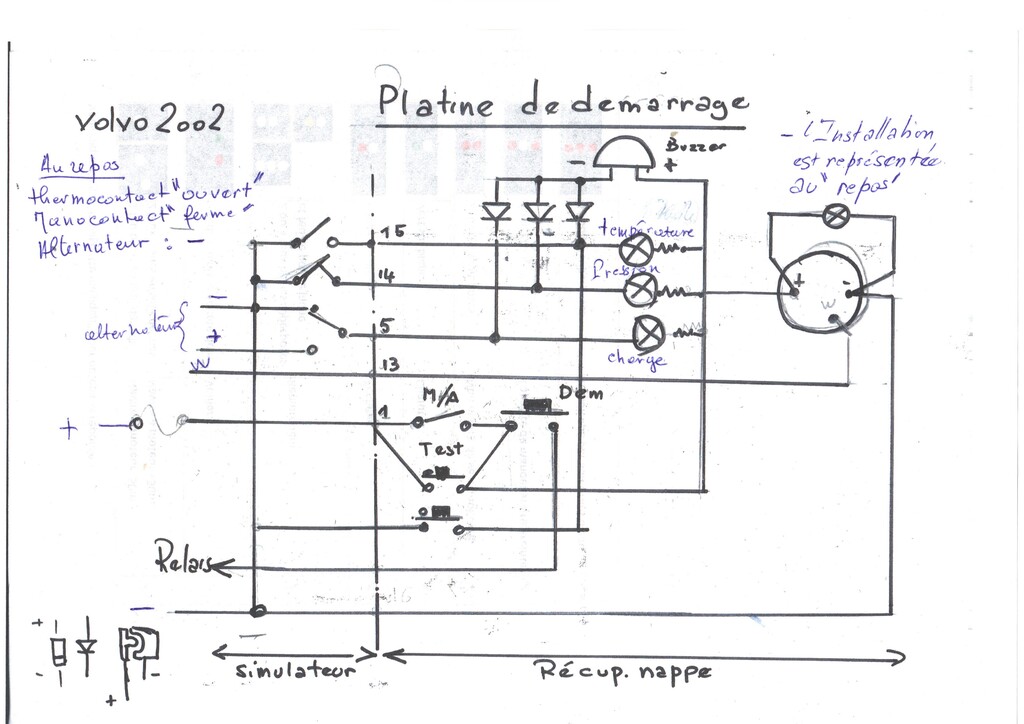 Platine de demarrage
Volvo 2002
Au repos
thermocontact "ouvert"
Manocontact "fermé"
Alternateur : -
- l'Installation
est représentée
au "repos"
Buzzer
- +
15
température
14
Pression
+ -
W
-
alternateur
+
5
charge
W
13
M/A
Dem
+
1
Test
Relais
-
-
+
-
-
+
simulateur
Récup. nappe